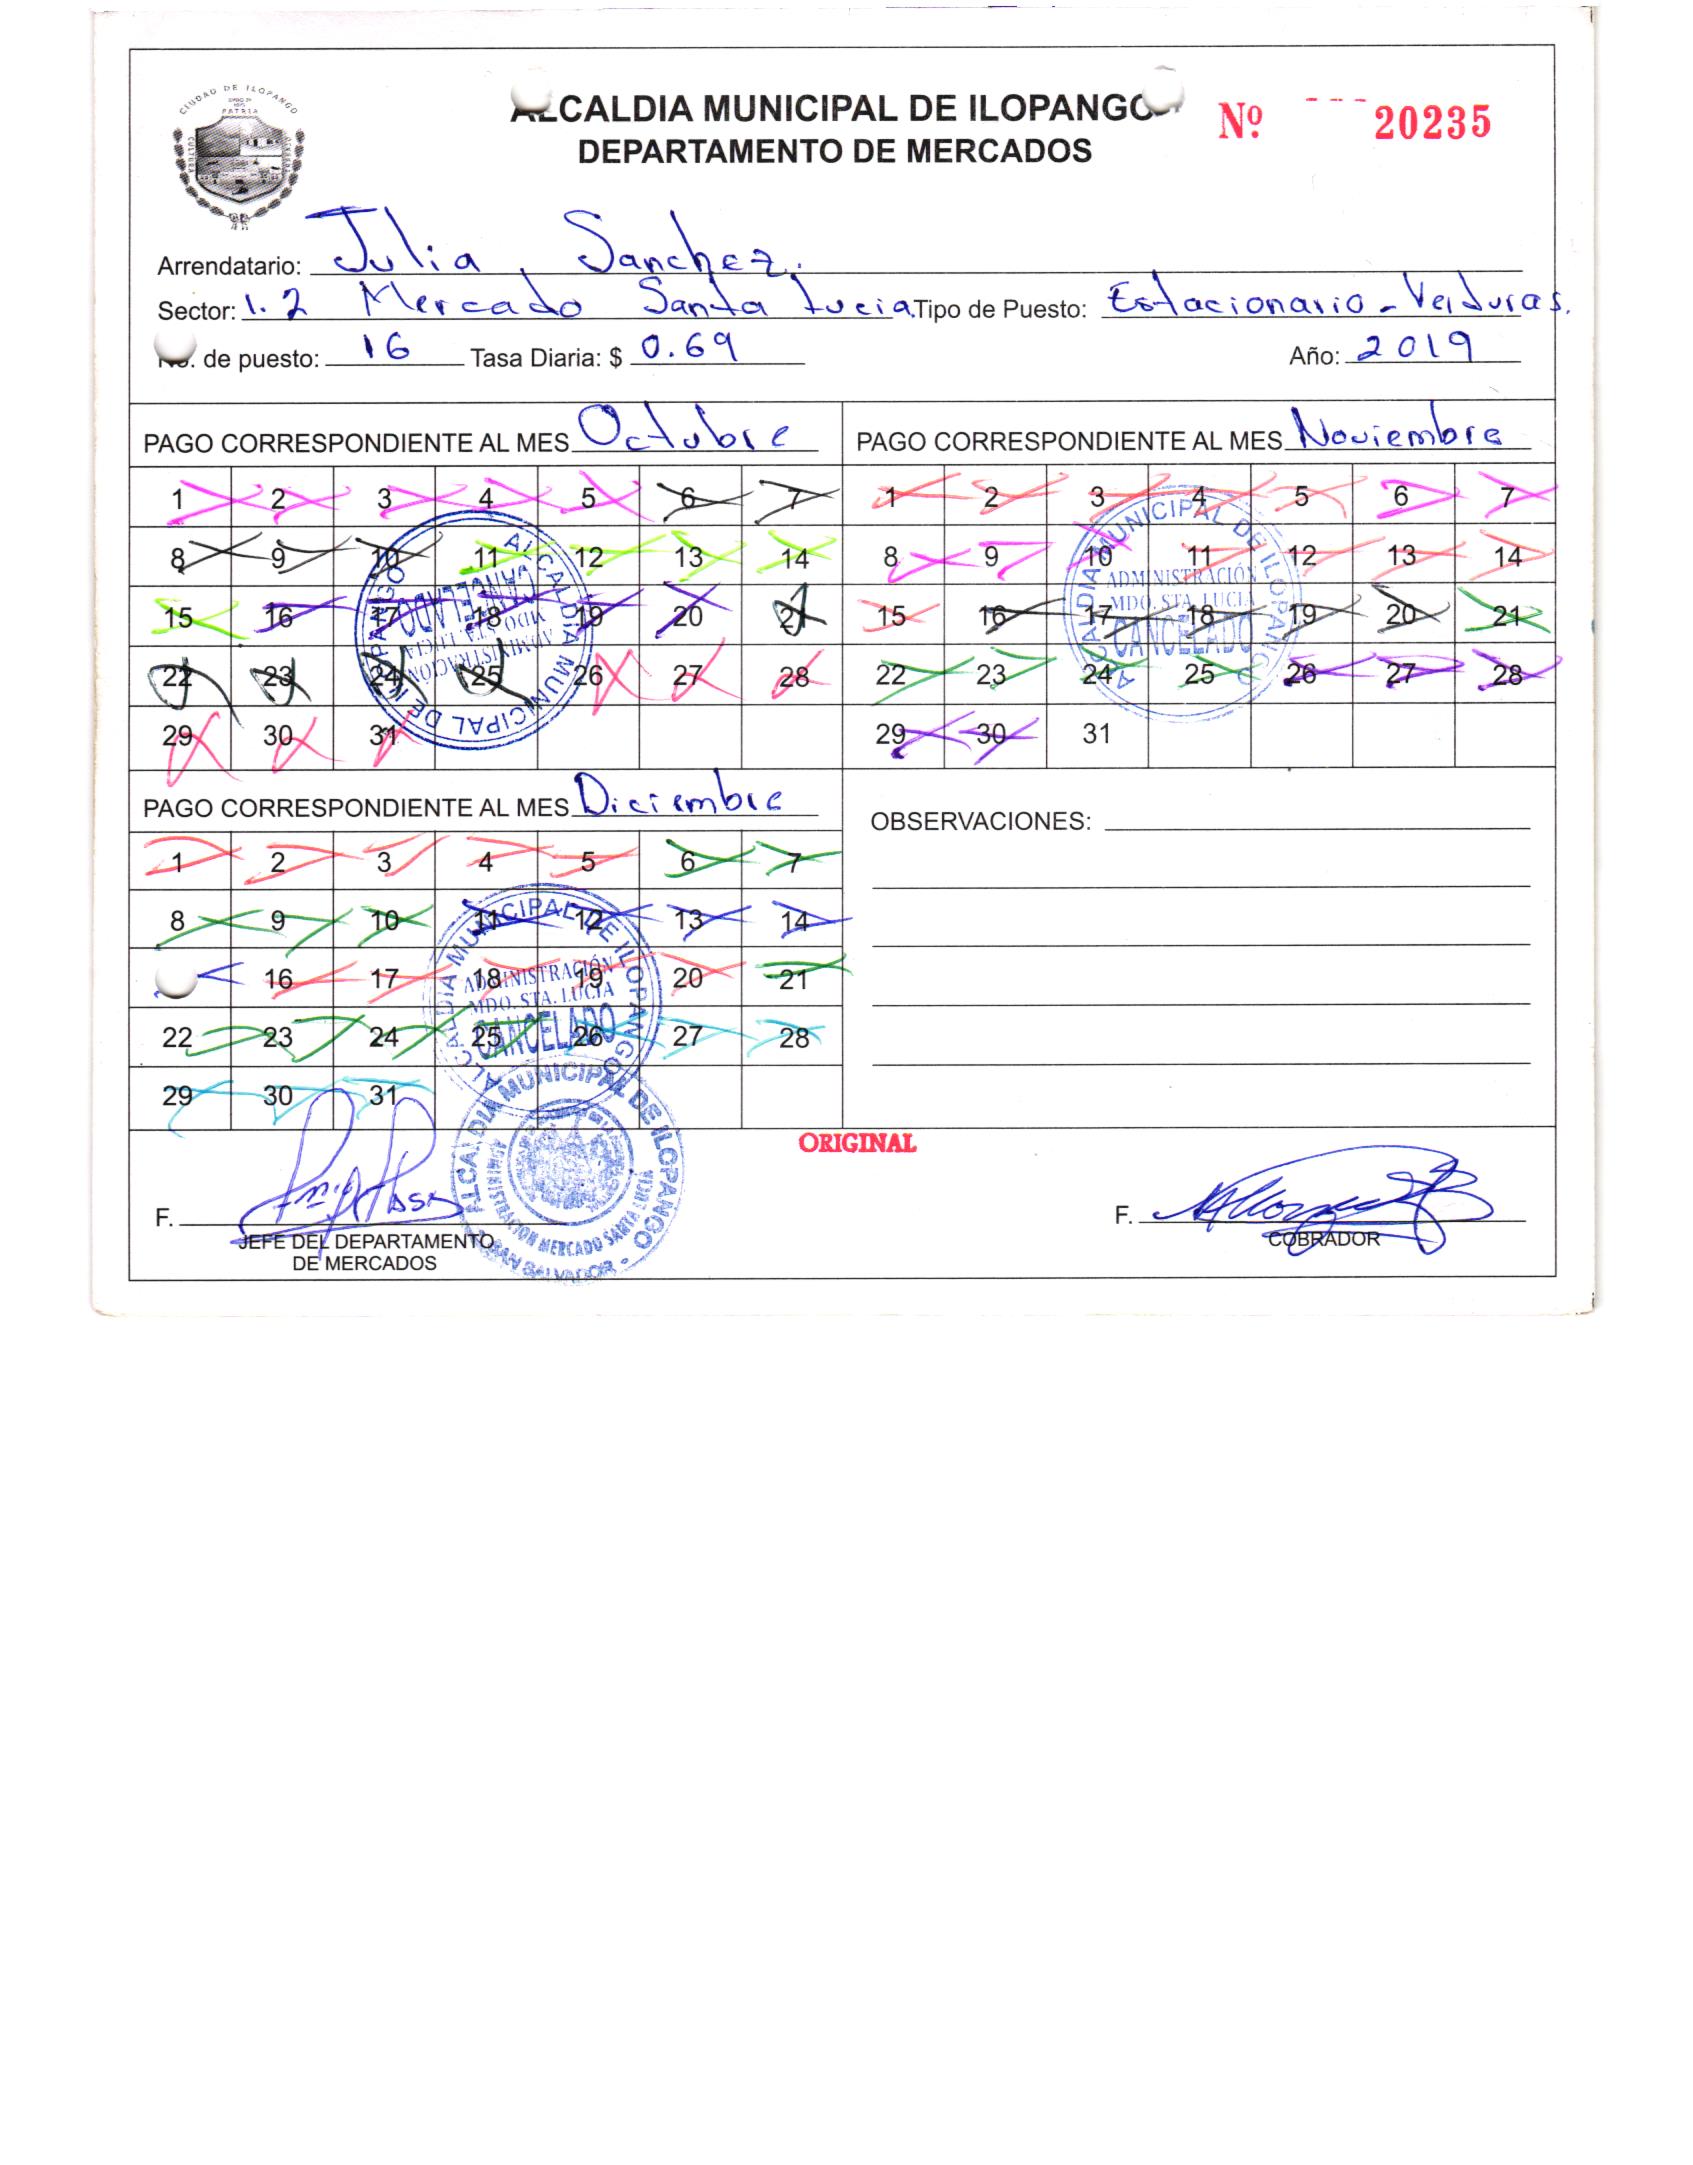 CIUDAD DE ILOPANGO
PATRIA
CULTURA
ALCALDIA MUNICIPAL DE ILOPANGO
DEPARTAMENTO DE MERCADOS
Nº 20235
Arrendatario: Julia Sanchez.
Sector: 1.2 Mercado Santa Lucia Tipo de Puesto: Estacionario - Verduras.
No. de puesto: 16 Tasa Diaria: $ 0.69 Año: 2019
PAGO CORRESPONDIENTE AL MES Octubre
1 2 3 4 5 6 7
8 9 10 11 12 13 14
15 16 17 18 19 20 21
22 23 24 25 26 27 28
29 30 31
ALCALDIA MUNICIPAL DE ILOPANGO
ADMINISTRACIÓN
MDO. STA. LUCIA
CANCELADO
PAGO CORRESPONDIENTE AL MES Noviembre
1 2 3 4 5 6 7
8 9 10 11 12 13 14
15 16 17 18 19 20 21
22 23 24 25 26 27 28
29 30 31
ALCALDIA MUNICIPAL DE ILOPANGO
ADMINISTRACIÓN
MDO. STA. LUCIA
CANCELADO
PAGO CORRESPONDIENTE AL MES Diciembre
1 2 3 4 5 6 7
8 9 10 11 12 13 14
16 17 18 19 20 21
22 23 24 25 26 27 28
29 30 31
ALCALDIA MUNICIPAL DE ILOPANGO
ADMINISTRACIÓN
MDO. STA. LUCIA
CANCELADO
OBSERVACIONES:
ORIGINAL
F.
JEFE DEL DEPARTAMENTO
DE MERCADOS
ALCALDIA MUNICIPAL DE ILOPANGO
ADMINISTRACION MERCADO SANTA LUCIA
SAN SALVADOR
F.
COBRADOR